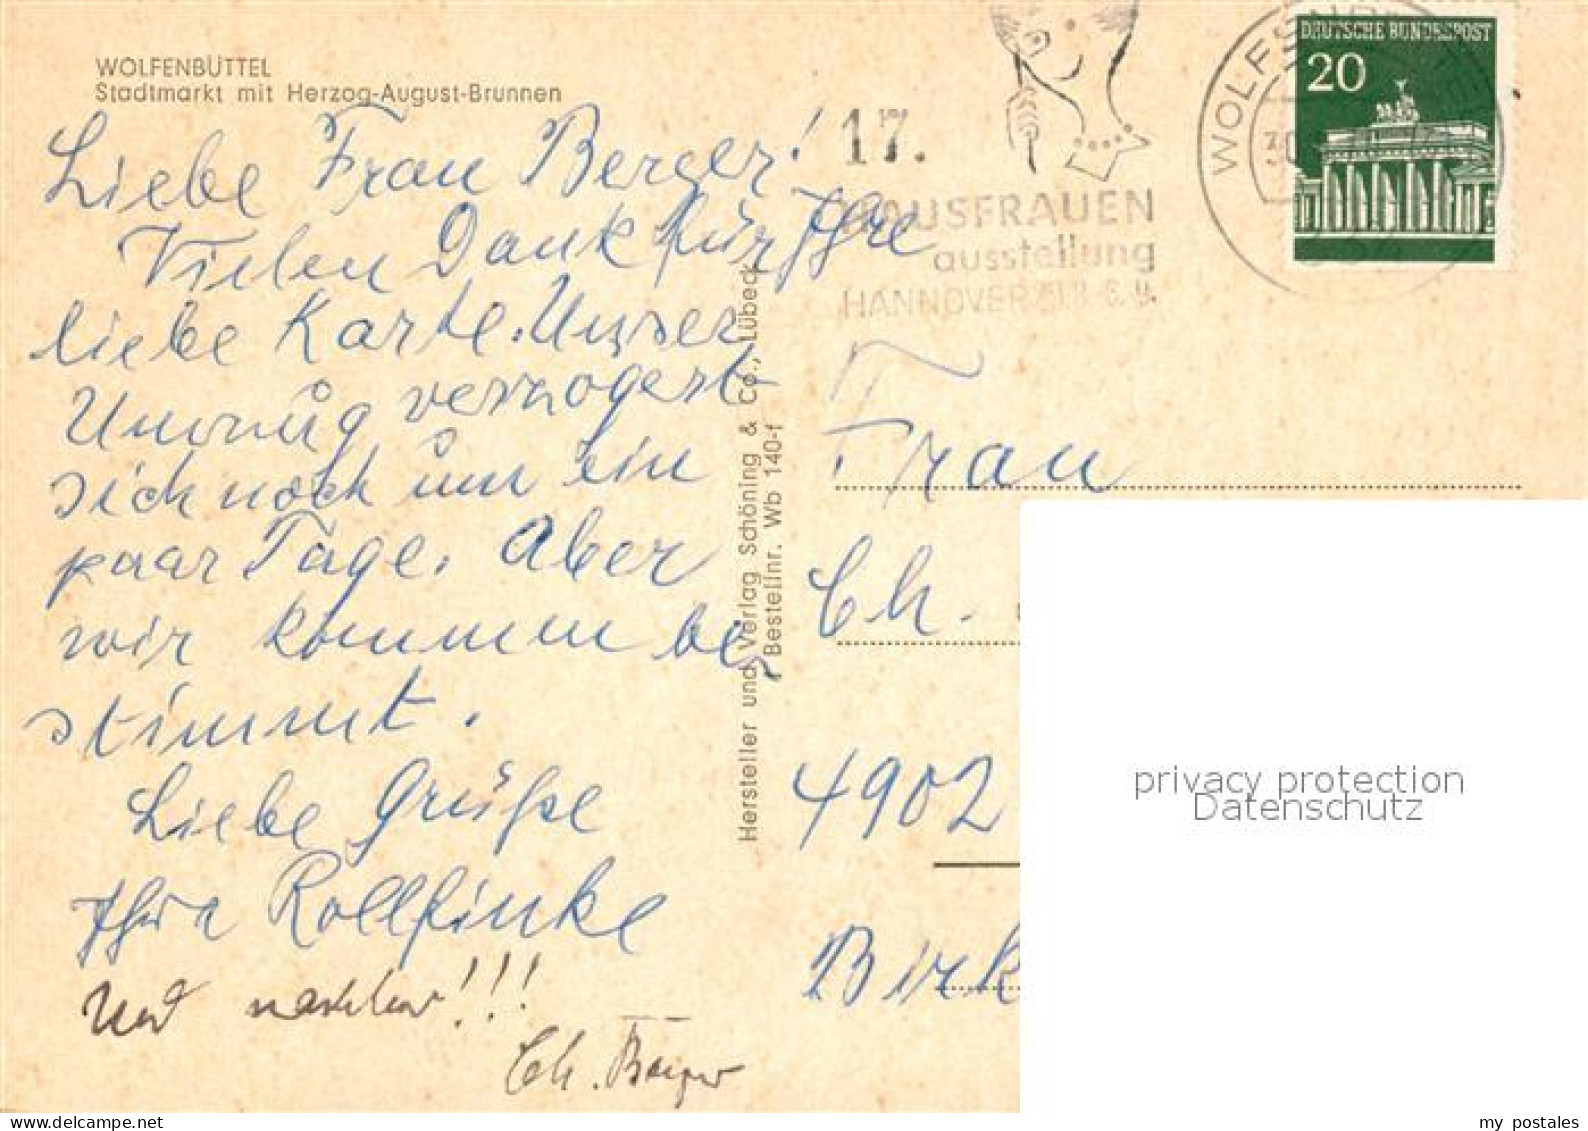 WOLFENBÜTTEL
Stadtmarkt mit Herzog-August-Brunnen
Liebe Frau Berger!
Vielen Dank für Ihre
liebe Karte. Unser
Umzug verzögert
sich noch um ein
paar Tage. Aber
wir kommen be
stimmt.
Liebe Grüße
Ihre Rollfinke
Und
Ch.
Hersteller und Verlag Schöning & Co., Lübeck
Bestellnr. Wb 140-f
17.
HAUSFRAUEN
ausstellung
HANNOVER
DEUTSCHE BUNDESPOST
20
Frau
Ch.
4902
Birk
privacy protection
Datenschutz
my postales